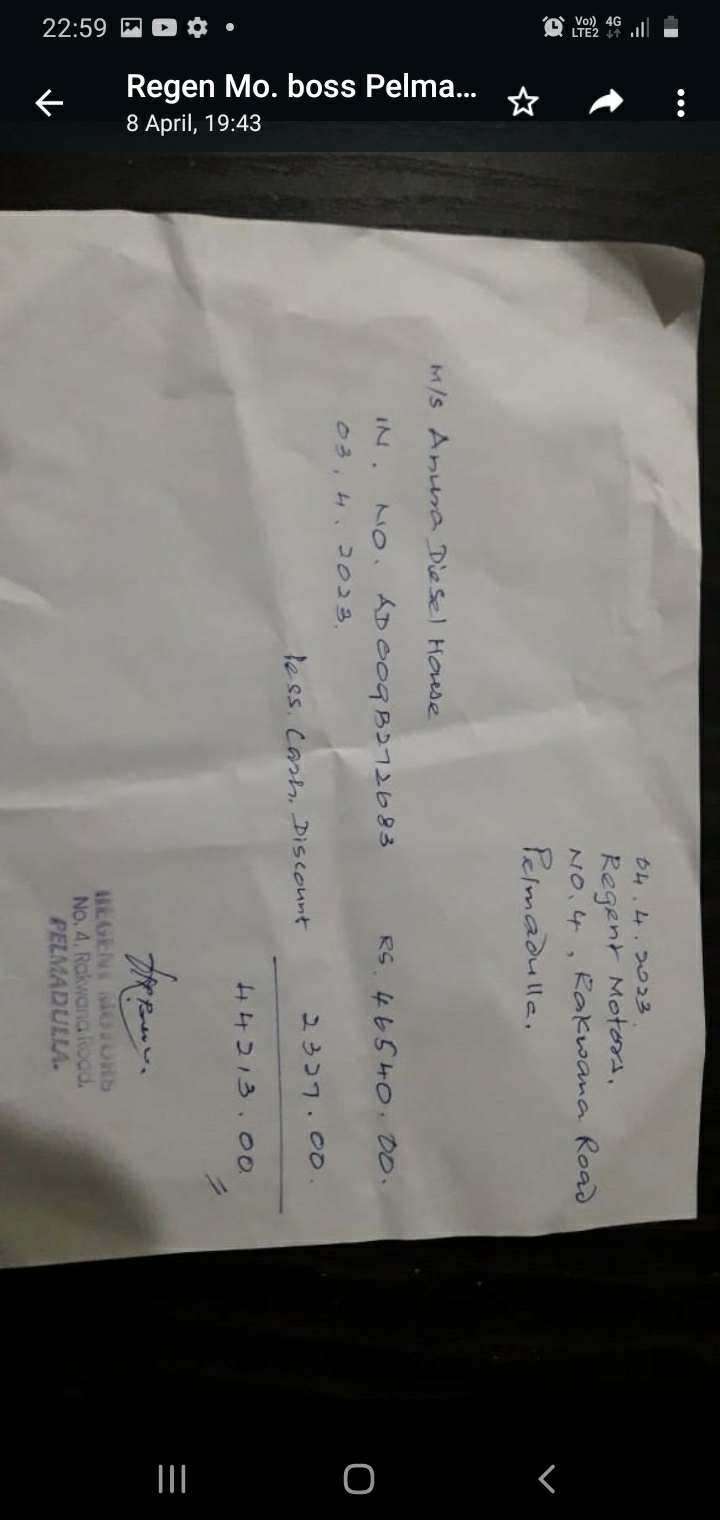 22:59
Vo)) LTE2 4G
Regen Mo. boss Pelma...
8 April, 19:43
04.4.2023.
Regent Motors,
No.4, Rakwana Road
Pelmadulla.
M/S Anura Diesel House
IN. NO. AD009B272683 RS. 46540.00.
03.4.2023.
less. Cash. Discount 2327.00.
44213.00
REGENT MOTORS
No. 4, Rakwana Road,
PELMADULLA.